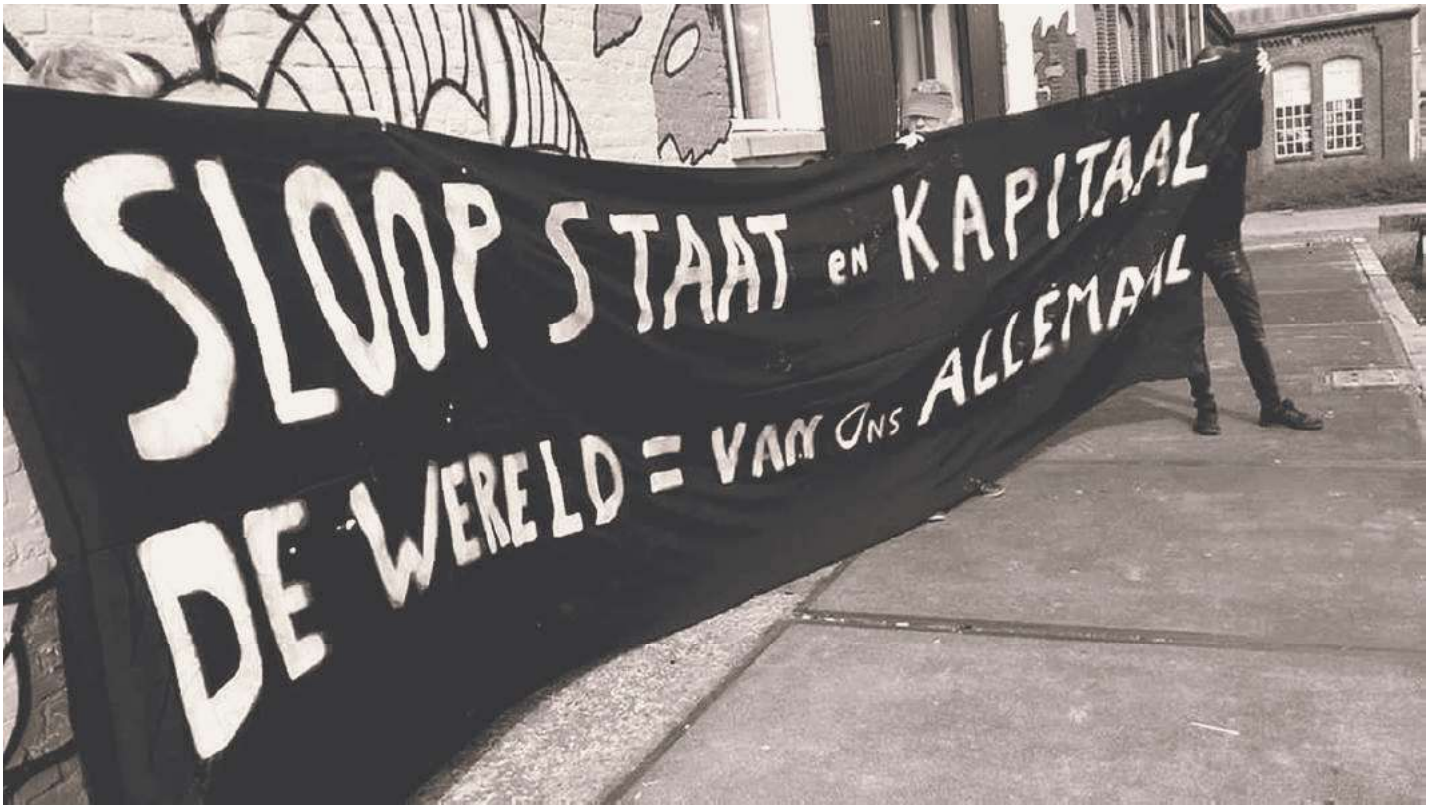 SLOOP STAAT en KAPITAAL
DE WERELD = VAN ONS ALLEMAAL